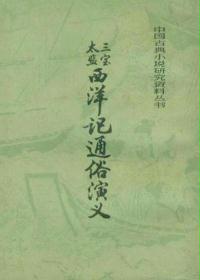 中国古典小说研究资料丛书
三宝太监
西洋记通俗演义